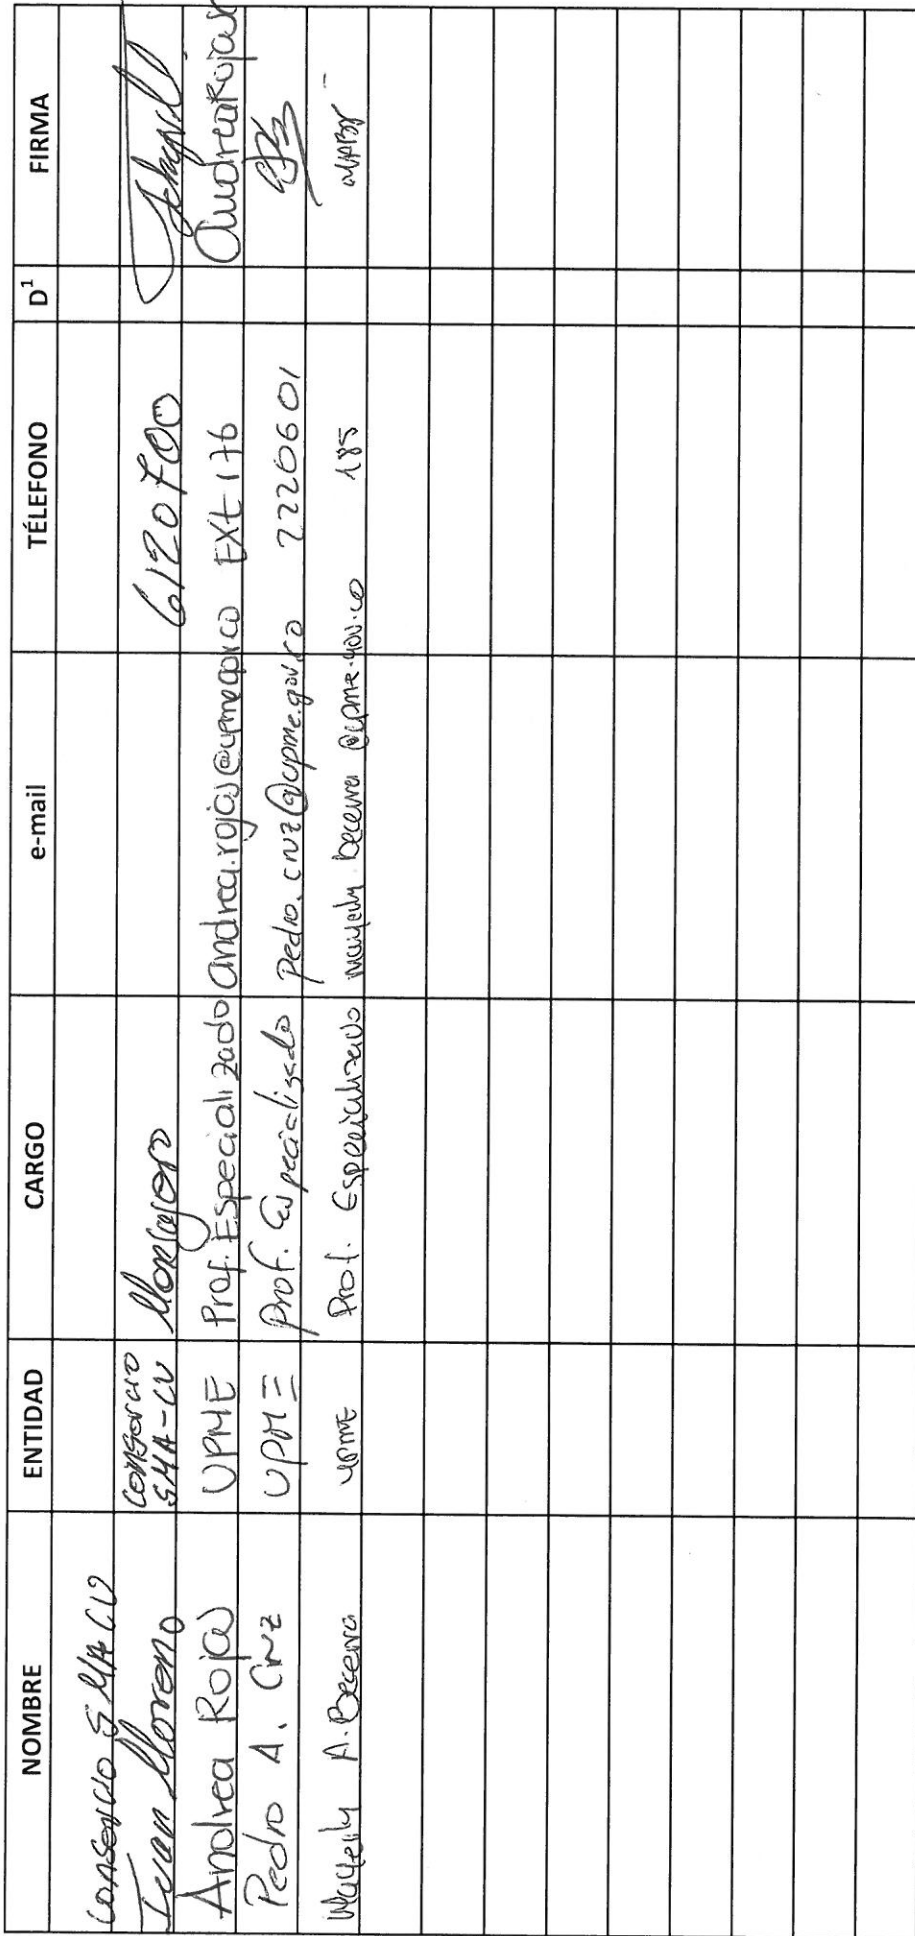 NOMBRE ENTIDAD CARGO e-mail TÉLEFONO D¹ FIRMA
Consorcio SMA CV
Ivan Moreno Consorcio SMA-CV Mensajero 6120700
Andrea Rojas UPME Prof. Especializado andrea.rojas@upme.gov.co Ext 176 Andrea Rojas
Pedro A. Cruz UPME Prof. Especializado pedro.cruz@upme.gov.co 2220601
A. Becerra UPME Prof. Especializado becerra@upme.gov.co 185